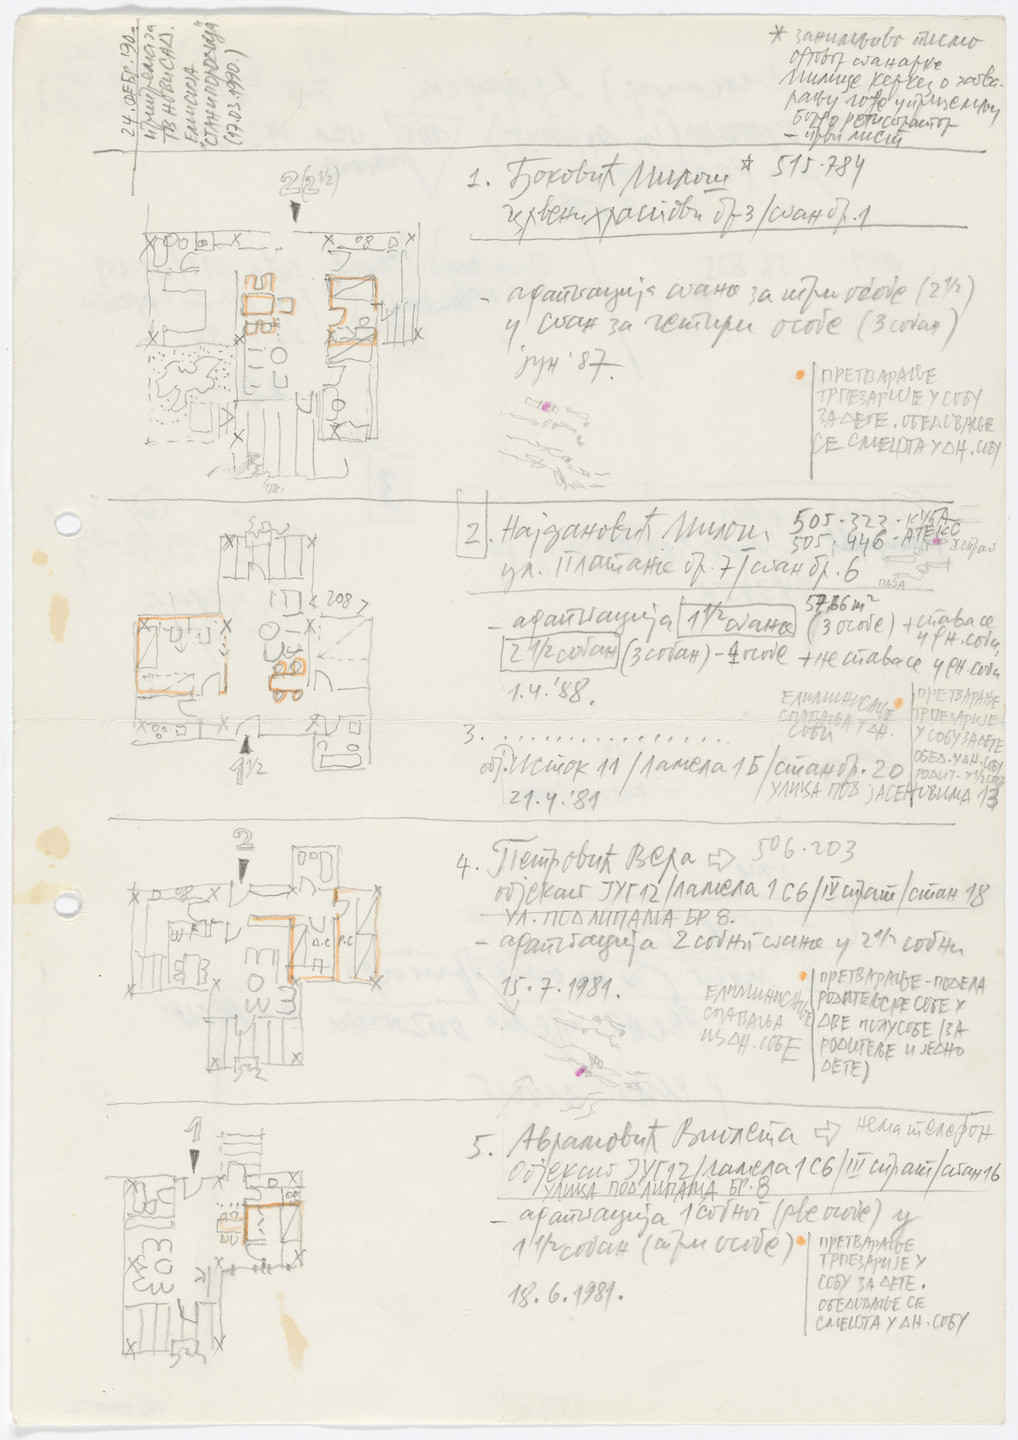 24. ФЕБР. '90.
ТВ НОВИ САД.
ЕМИСИЈА
"СТАН И ПОРОДИЦА"
(17.03.1990.)
* занимљиво писмо
Милице Керкез о затва-
– први лист
2(2½)
1. Ђоковић Милош * 515-784
црвени храстови бр-3/стан бр. 1
– адаптација стана за три особе (2½)
у стан за четири особе (3 собан)
јун '87.
ПРЕТВАРАЊЕ
ТРПЕЗАРИЈЕ У СОБУ
ЗА ДЕТЕ. ОБЕДОВАЊЕ
СЕ СМЕШТА У ДН. СОБУ
2. Најдановић Милош 505-323-КУЋА
505-446-АТЕКС
ул. Платаније бр. 7/стан бр. 6
208
– адаптација 1½ стана (3 особе) + спава се
у дн. соби,
2½ собан (3 собан) – 4 особе + не спава се у дн. соби
1.4.'88.
ЕЛИМИНИСАЊЕ
СПАВАЊА У ДН.
СОБИ
ПРЕТВАРАЊЕ
ТРПЕЗАРИЈЕ
У СОБУ ЗА ДЕТЕ
ОБЕД. У ДН. СОБУ
1½
3. . . . . . . . . . . . . . . . .
обј. Исток 11/ламела 1Б/стан бр. 20
21.4.'81
УЛИЦА ПОД ЈАСЕНОВИМА 13
2
4. Петровић Вера ⇨ 506-203
објекат ЈУГ12/ламела 1С6/IV спрат/стан 18
УЛ. ПОД ЛИПАМА БР 8.
– адаптација 2 собног стана у 2½ собни
15.7.1981.
Д.С Р.С
ЕЛИМИНИСАЊЕ
СПАВАЊА
ИЗ ДН. СОБЕ
ПРЕТВАРАЊЕ-ПОДЕЛА
РОДИТЕЉСКЕ СОБЕ У
ДВЕ ПОЛУСОБЕ (ЗА
РОДИТЕЉЕ И ЈЕДНО
ДЕТЕ)
1
5. Аврамовић Виолета ⇨ нема телефон
Објекат ЈУГ12/ламела 1С6/III спрат/стан 16
УЛИЦА ПОД ЛИПАМА БР. 8
– адаптација 1 собног (две особе) у
1½ собан (три особе)
18.6.1981.
ПРЕТВАРАЊЕ
ТРПЕЗАРИЈЕ У
СОБУ ЗА ДЕТЕ.
ОБЕДОВАЊЕ СЕ
СМЕШТА У ДН. СОБУ